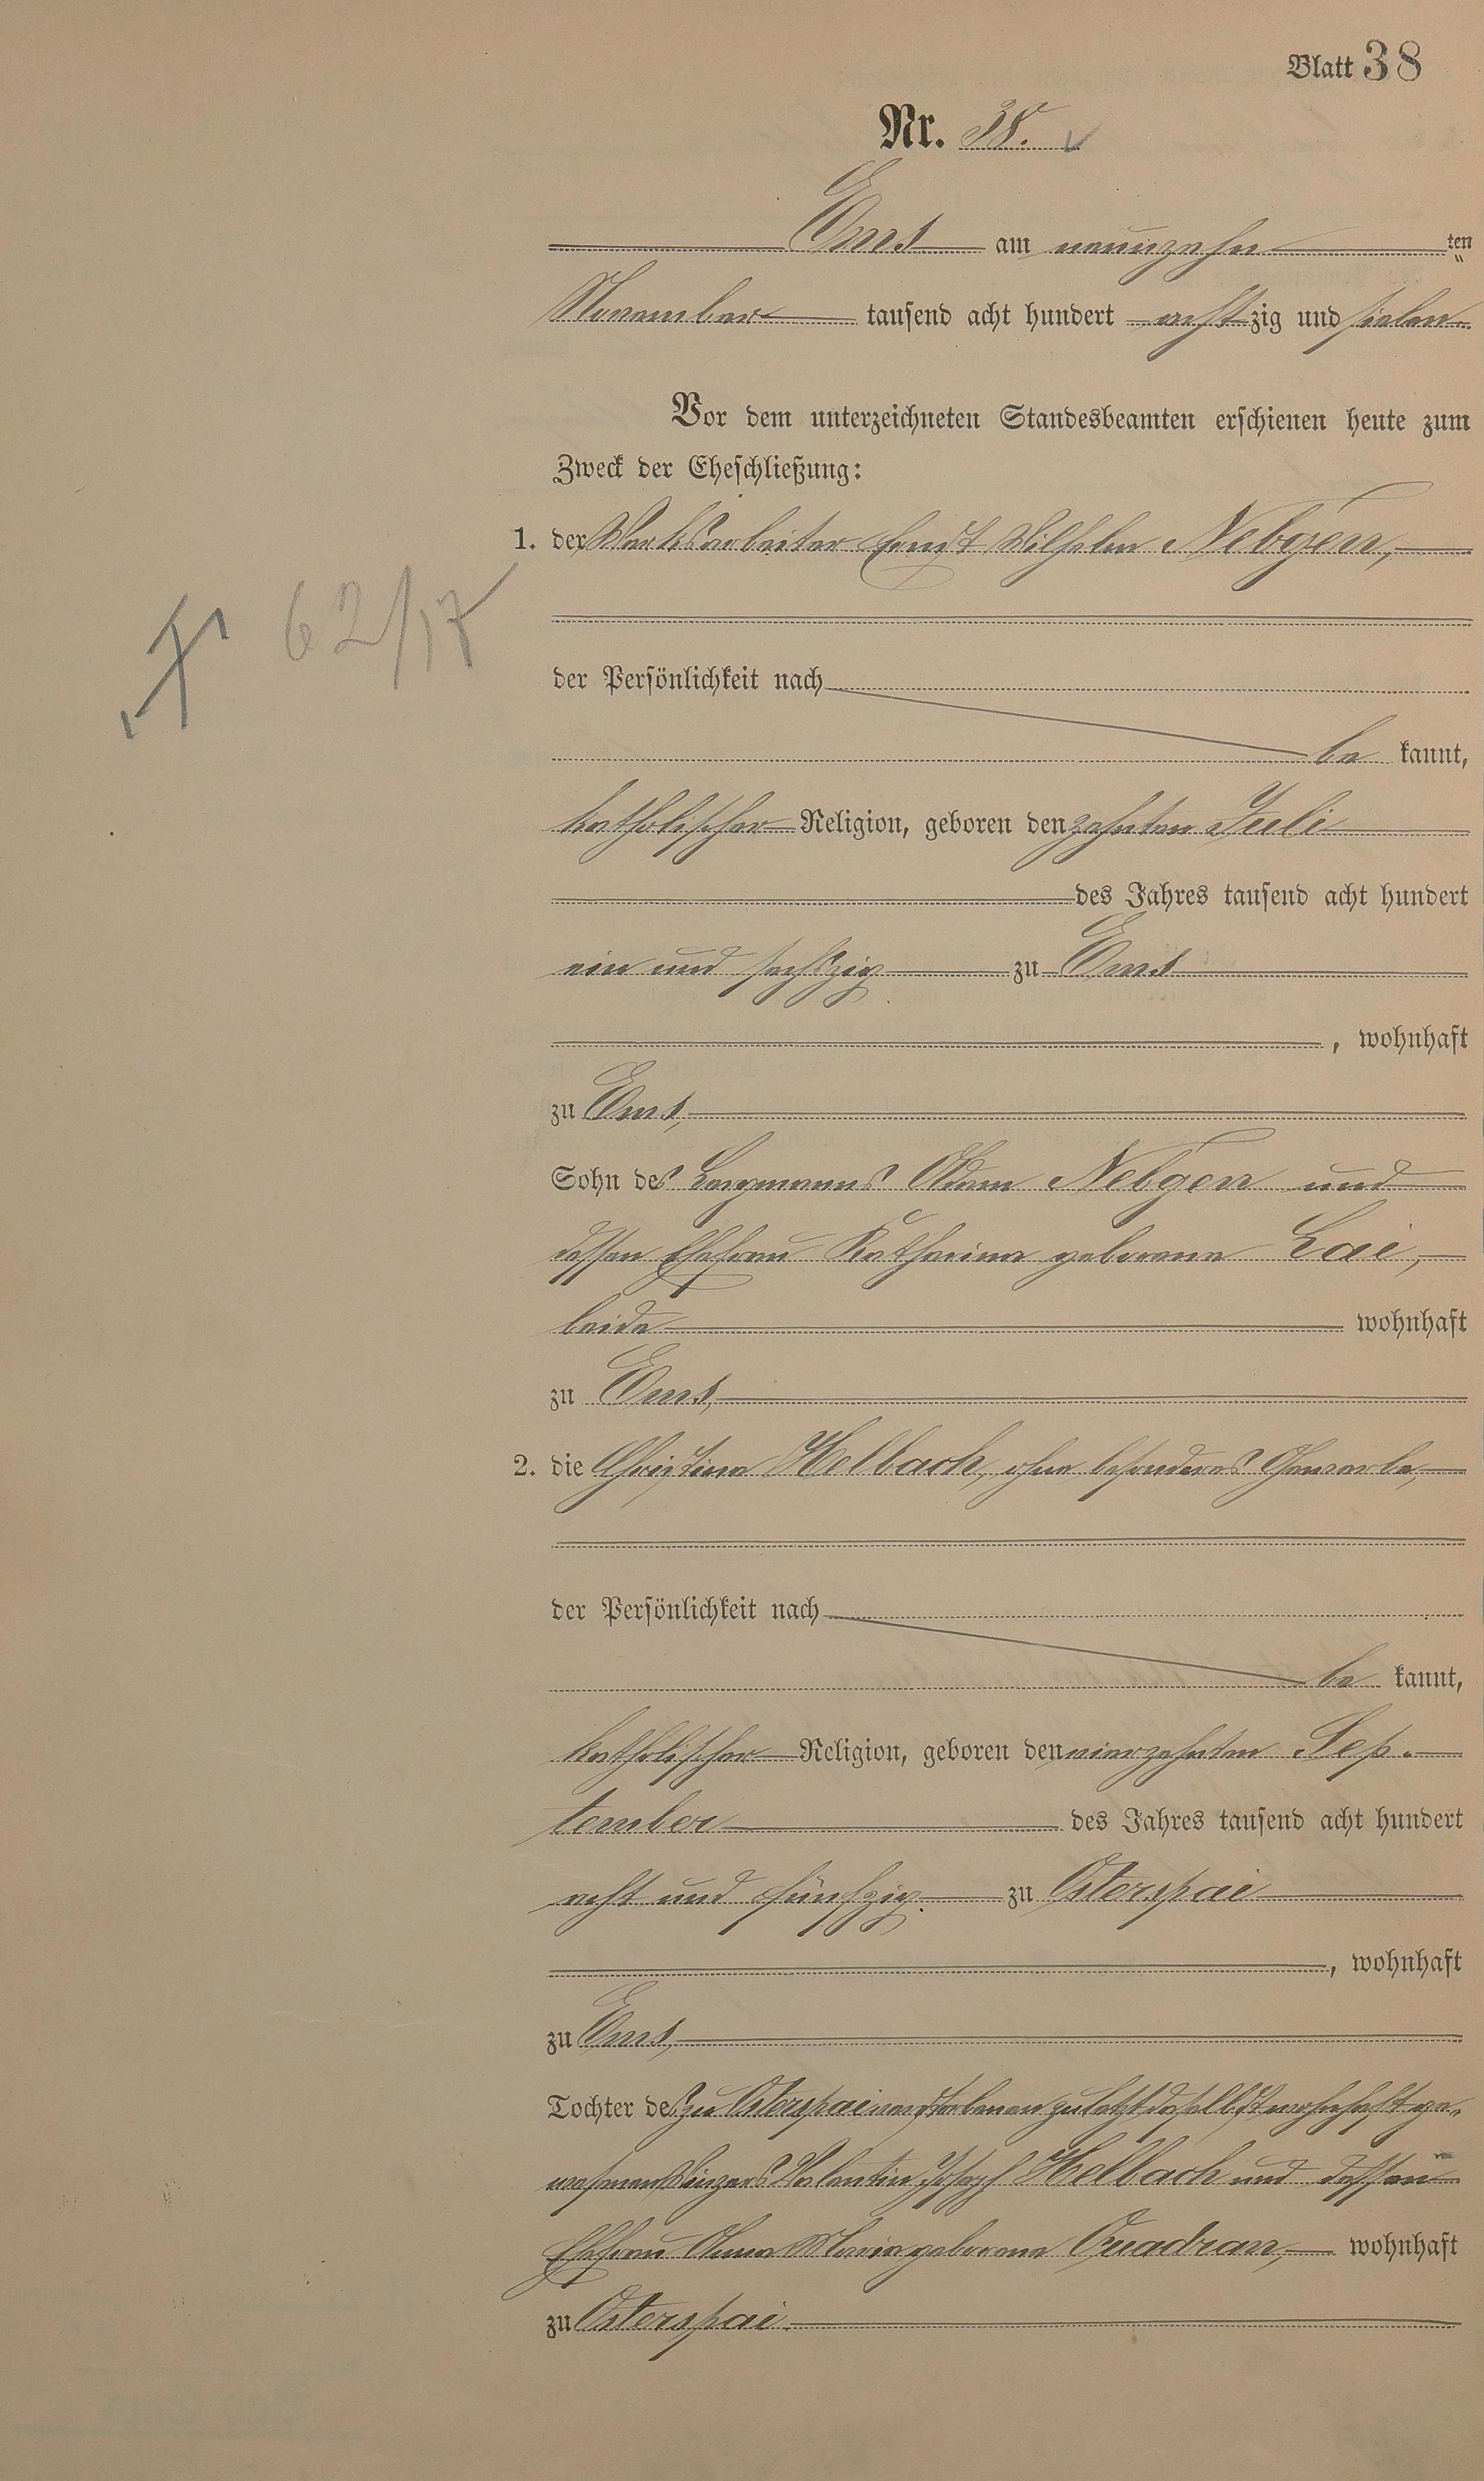 Blatt 38
Nr. 38.
Ems am neunzehn ten
November tausend acht hundert achtzig und sieben.
Vor dem unterzeichneten Standesbeamten erschienen heute zum
Zweck der Eheschließung:
1. der Werksarbeiter Ernst Wilhelm Nebgen,
62/17
der Persönlichkeit nach
be kannt,
katholischer Religion, geboren den zehnten Juli
des Jahres tausend acht hundert
ein und sechszig zu Ems
, wohnhaft
zu Ems,
Sohn des Bergmanns Adam Nebgen und
dessen Ehefrau Katharina geborene Lai,
beide wohnhaft
zu Ems,
2. die Christina Helbach, ohne besonderes Gewerbe,
der Persönlichkeit nach
be kannt,
katholischer Religion, geboren den vierzehnten Sep-
tember des Jahres tausend acht hundert
acht und fünfzig zu Osterspai
, wohnhaft
zu Ems,
Tochter des zu Osterspai verstorbenen zuletzt daselbst wohnhaft ge-
wesenen Winzers Valentin Joseph Helbach und dessen
Ehefrau Anna Maria geborene Quadran, wohnhaft
zu Osterspai.